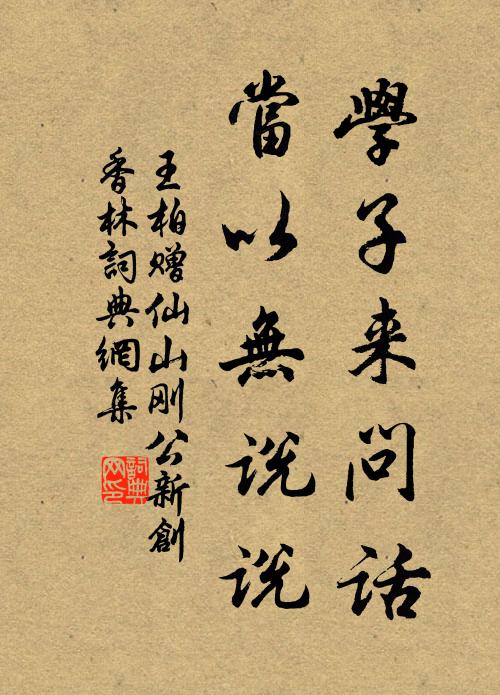 學子来問話
當以無說說
王柏赠仙山刚公新創
香林詞典網集
詞典网印